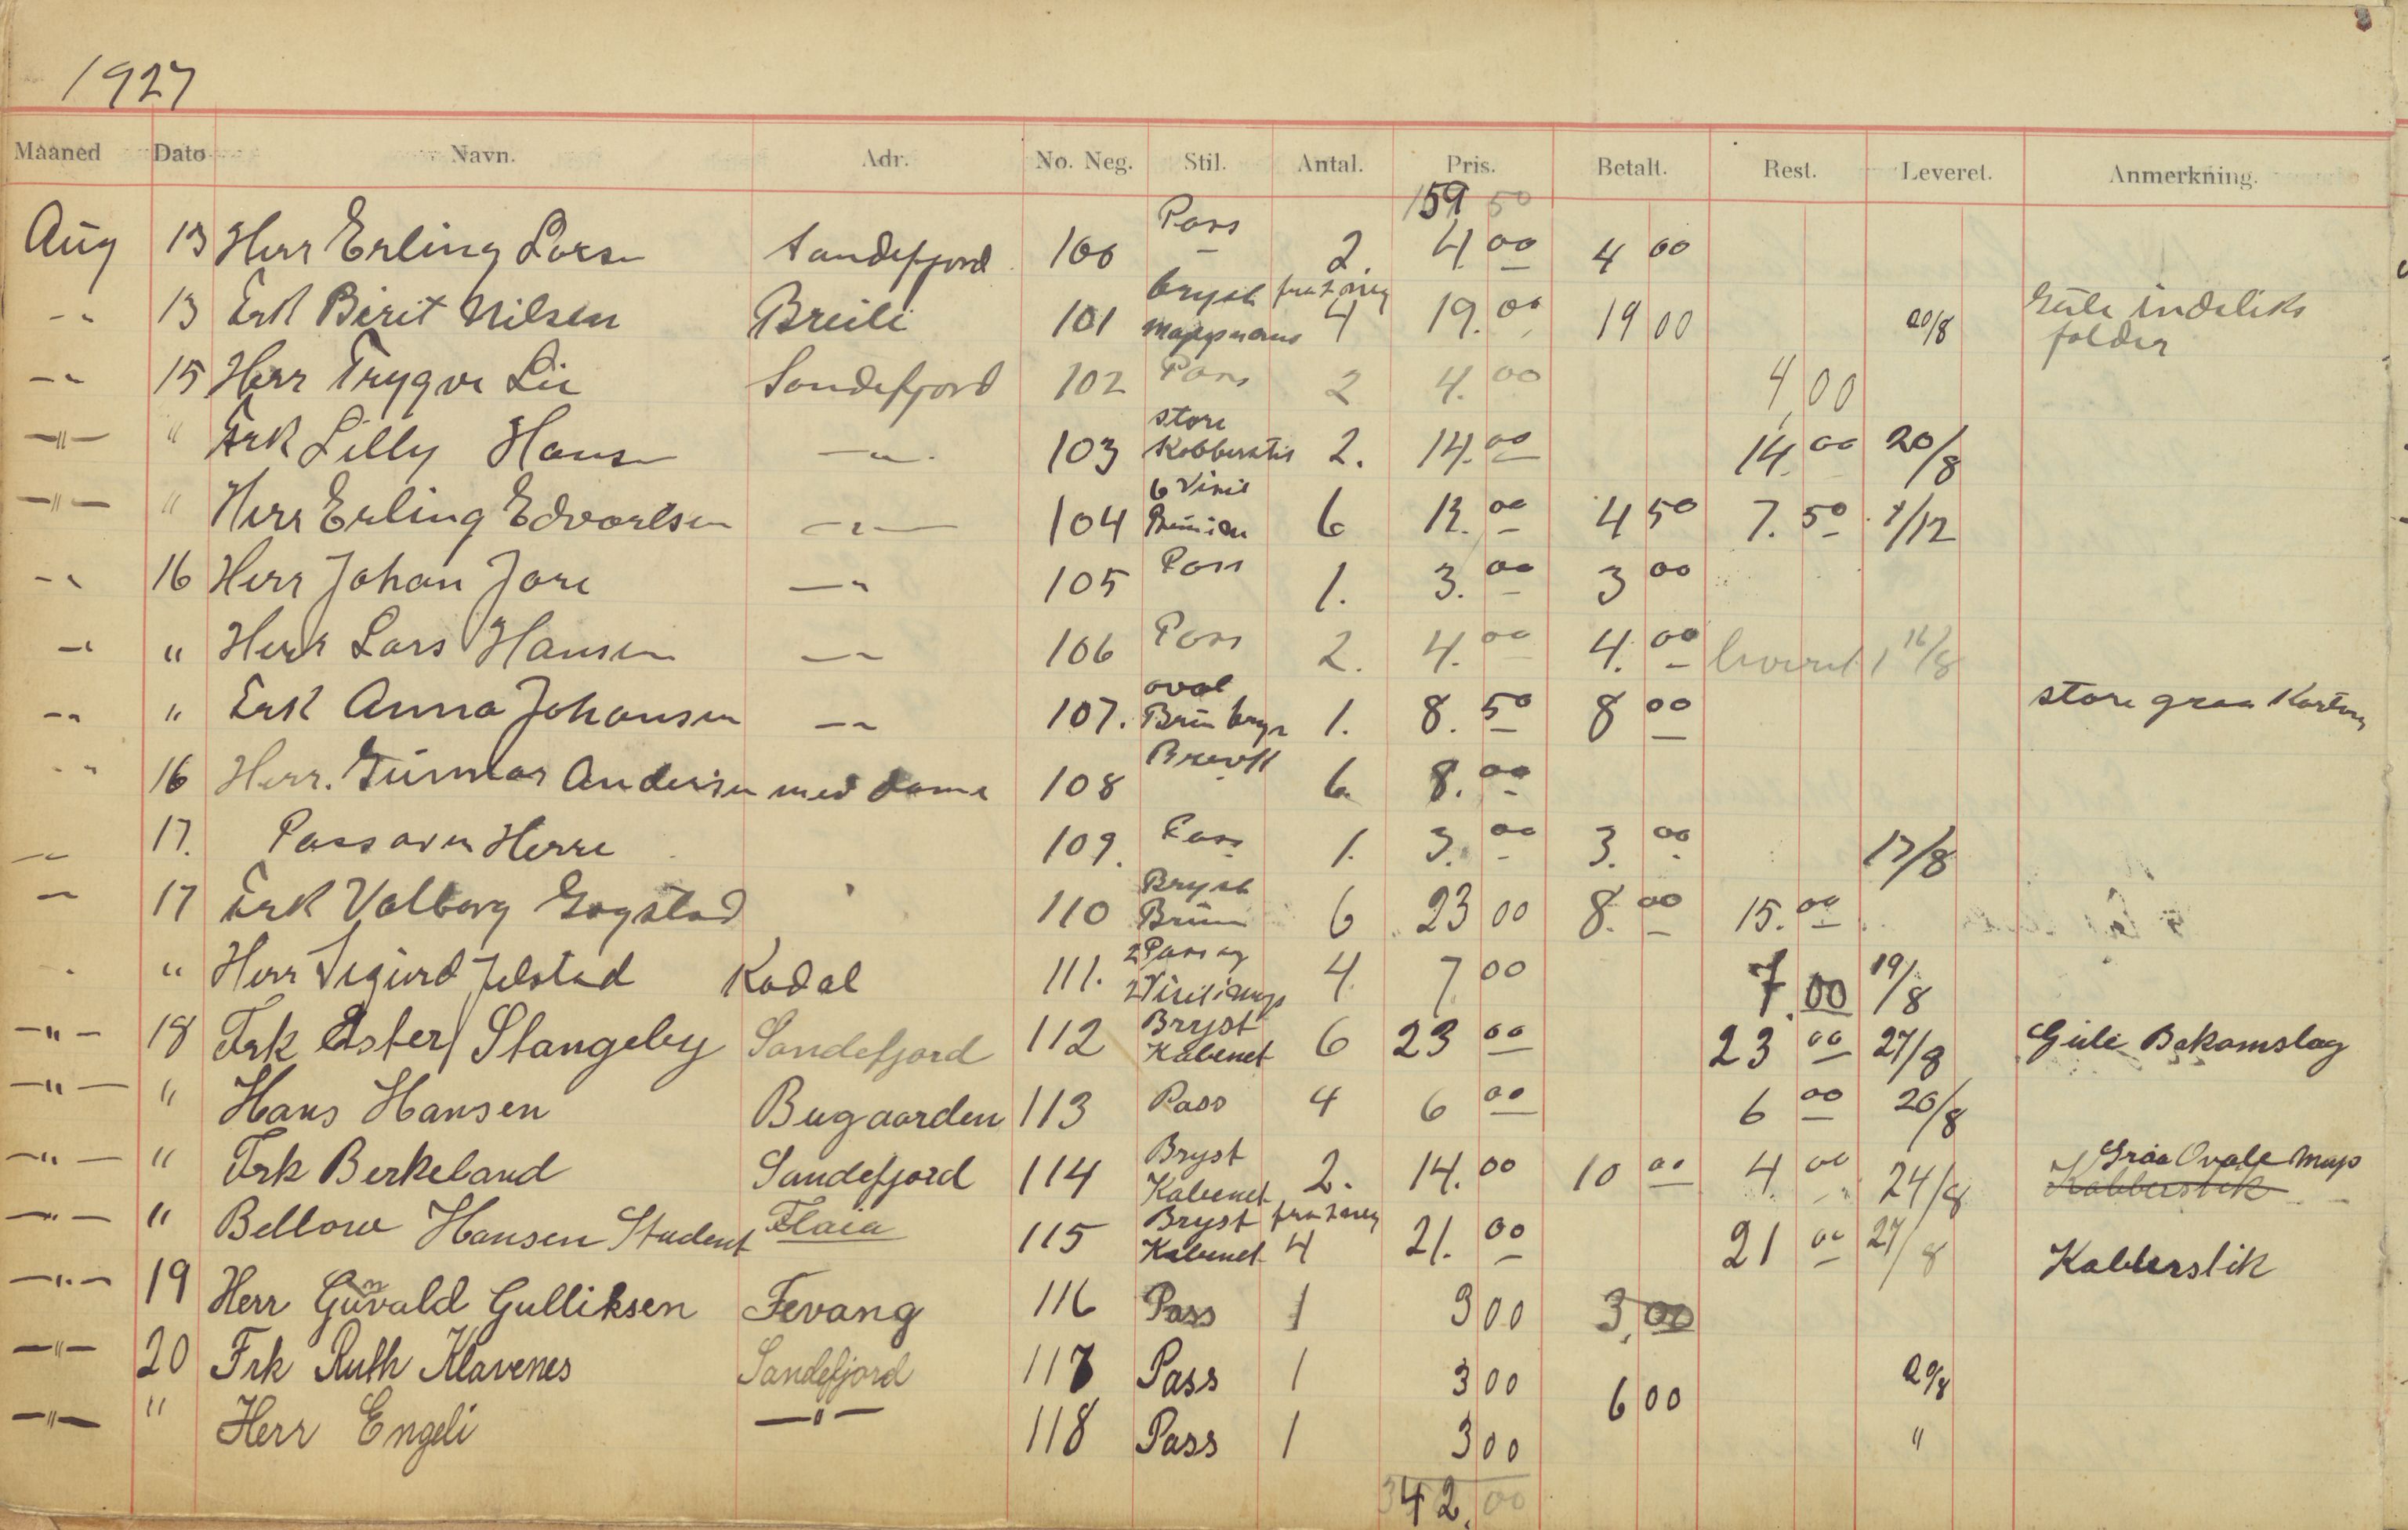 1927
Maaned Dato Navn. Adr. No. Neg. Stil. Antal. Pris. Betalt. Rest. Leveret. Anmerkning.
159 50
Aug 13 Herr Erling Larsen Sandefjord 100 Pass 2. 4.00 4 00
-"- 13 Frk Berit Nilsen Breili 101 bryst 4 19.00 19 00 20/8 Gule
folder
-"- 15 Herr Trygve Lie Sandefjord 102 Pass 2 4.00 4,00
-"- " Frk Lilly Hansen -"- 103 store Kobberstik 2. 14.00 14.00 20/8
-"- " Herr Erling Edvardsen -"- 104 6 Visit 6 12.00 4 50 7.50 1/12
-"- 16 Herr Johan Jore -"- 105 Pass 1. 3.00 3 00
-"- " Herr Lars Hansen -"- 106 Pass 2. 4.00 4.00 leveret 16/8
-"- " Frk Anna Johansen -"- 107. oval Brun bryst 1. 8.50 8 00 store graa Karton
-"- 16 Herr. Gunnar Andersen med dame 108 6 8.00
-"- 17. Pass av en Herre 109. Pass 1. 3.00 3.00 17/8
-"- 17 Frk Valborg Gogstad 110 Bryst Brun 6 23 00 8.00 15.00
" Herr Sigurd Jelstad Kodal 111. 2 Pass og 4 7 00 7.00 19/8
-"- 18 Frk Ester Stangeby Sandefjord 112 Bryst Kabenet 6 23 00 23 00 27/8 Gule Bakomslag
-"- " Hans Hansen Bugaarden 113 Pass 4 6 00 6 00 20/8
-"- " Frk Berkeland Sandefjord 114 Bryst Kabenet 2. 14.00 10 00 4 00 24/8 Graa Ovale Map
Kobberstik
-"- " Bellow Hansen Student Flaia 115 Bryst Kabenet fra 2 neg 4 21.00 21 00 27/8 Kobberstik
-"- 19 Herr Gunvald Gulliksen Fevang 116 Pass 1 3 00 3,00
-"- 20 Frk Ruth Klavenes Sandefjord 117 Pass 1 3 00 6 00 20/8
-"- " Herr Engeli -"- 118 Pass 1 3 00 "
342.00